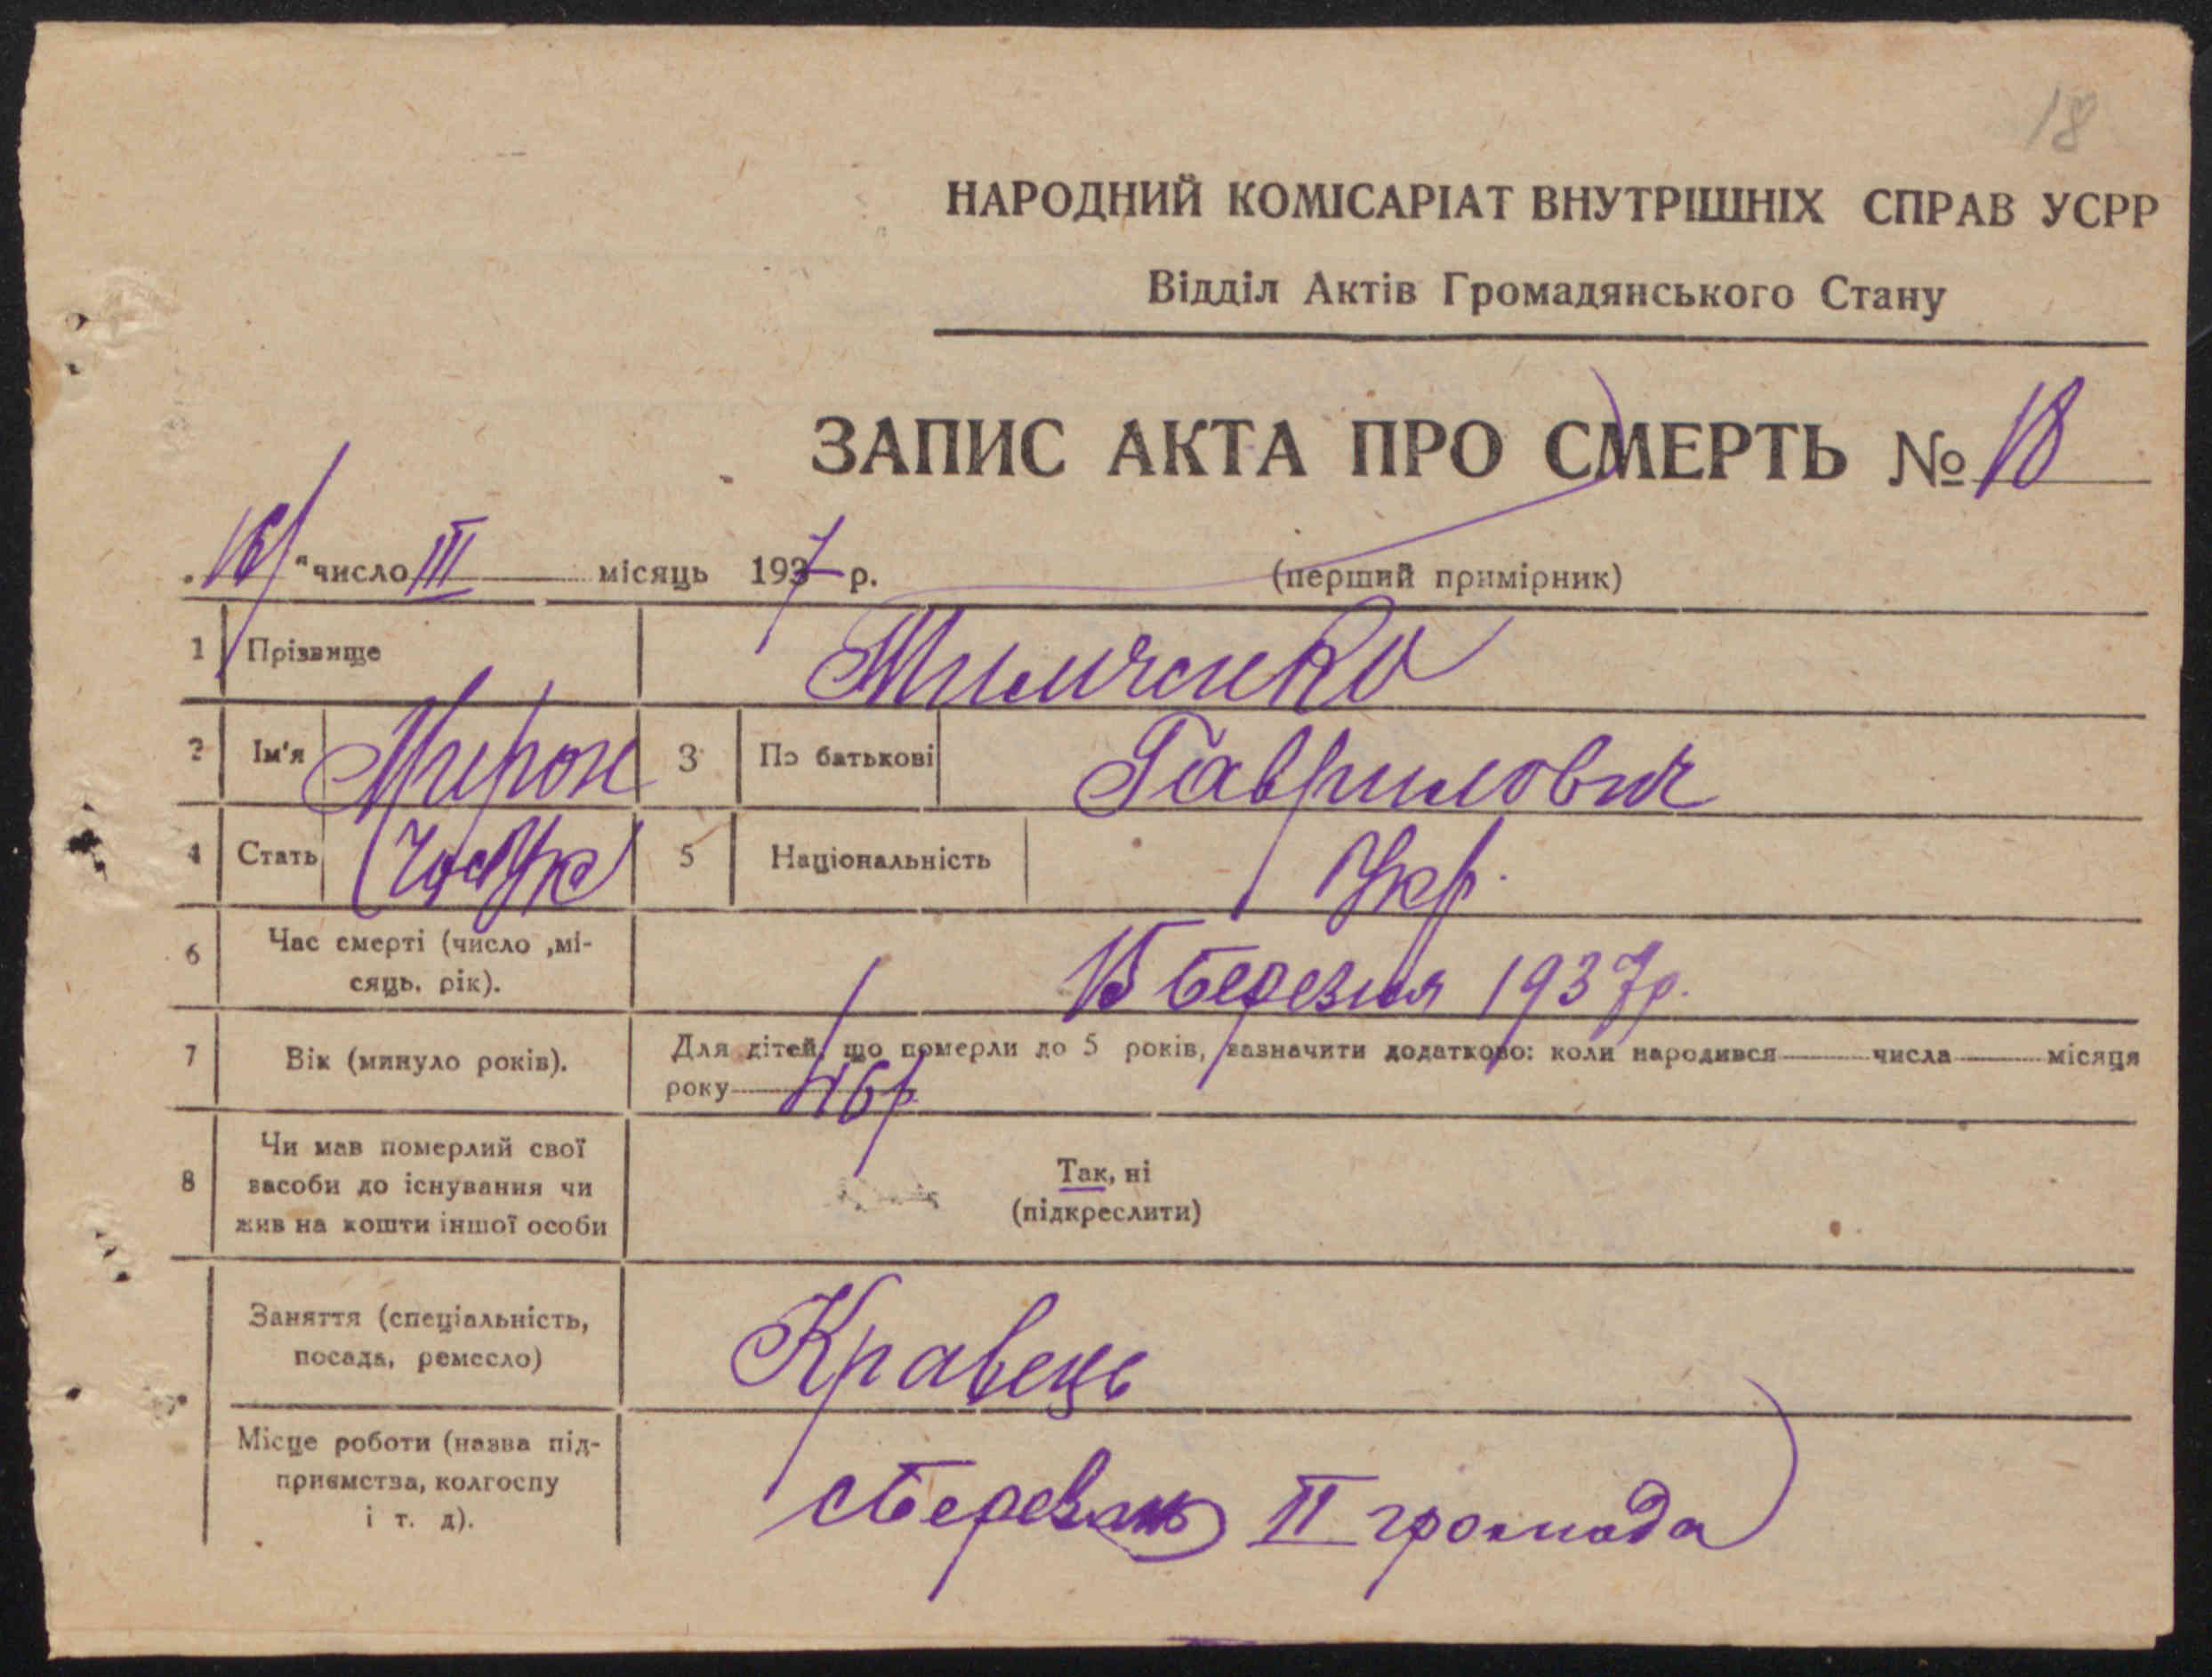 18
НАРОДНИЙ КОМІСАРІАТ ВНУТРІШНІХ СПРАВ УСРР
Відділ Актів Громадянського Стану
ЗАПИС АКТА ПРО СМЕРТЬ № 18
"16" число III місяць 1937 р. (перший примірник)
1 Прізвище Тимченко
2 Ім'я Мирон 3 По батькові Гаврилович
4 Стать 5 Національність Укр.
6 Час смерті (число ,мі-
сяць, рік). 15 березня 1937р.
7 Вік (минуло років). Для дітей, що померли до 5 років, зазначити додатково: коли народився числа місяця
року 46р
8 Чи мав померлий свої
засоби до існування чи
жив на кошти іншої особи
Так, ні
(підкреслити)
Заняття (спеціальність,
посада, ремесло) Кравець
Місце роботи (назва під-
приємства, колгоспу
і т. д). Березань II громада